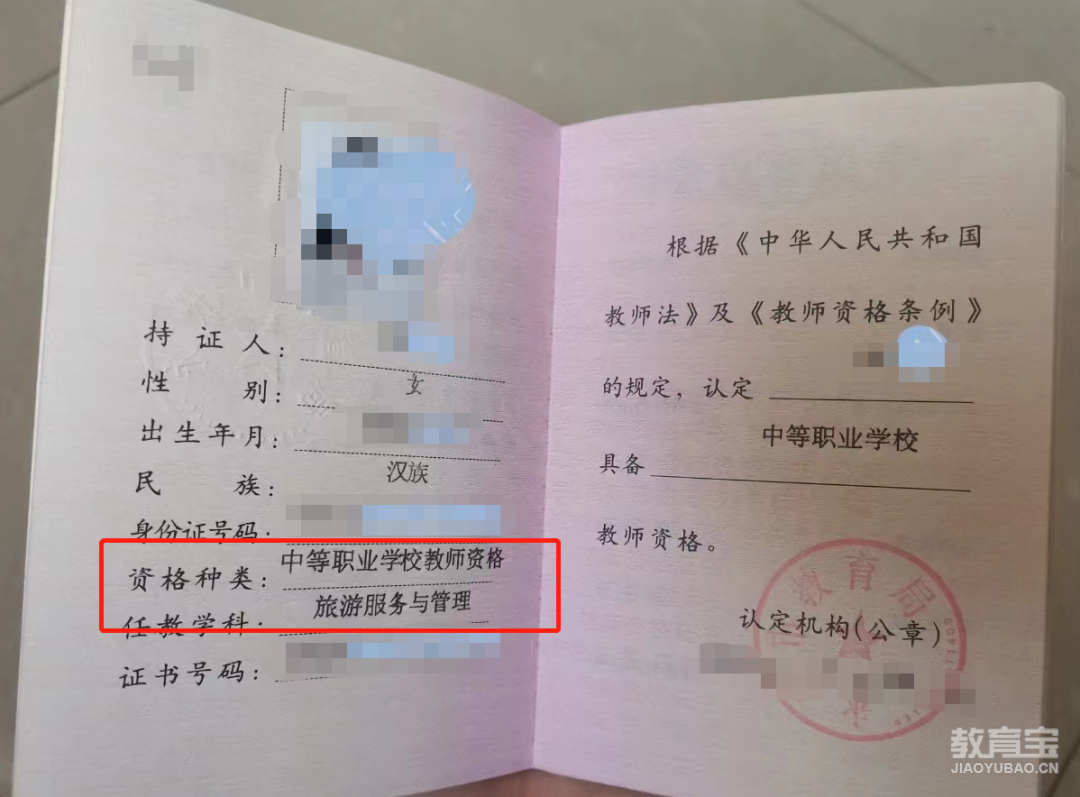 持证人：
性别：女
出生年月：
民族：汉族
身份证号码：
资格种类：中等职业学校教师资格
任教学科：旅游服务与管理
证书号码：
根据《中华人民共和国
教师法》及《教师资格条例》
的规定，认定
具备 中等职业学校
教师资格。
教育局
认定机构(公章)
教育宝
JIAOYUBAO.CN